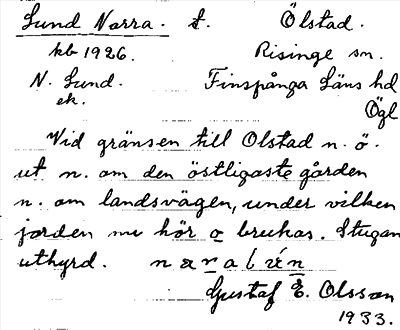 Lund Norra. t. Ölstad.
kb 1926. Risinge sn.
N. Lund. Finspånga Läns hd
ek. Ögl
Vid gränsen till Olstad n. ö.
ut n. om den östligaste gården
n. om landsvägen, under vilken
jorden nu hör o brukas. Stugan
uthyrd.
Gustaf E. Olsson
1933.